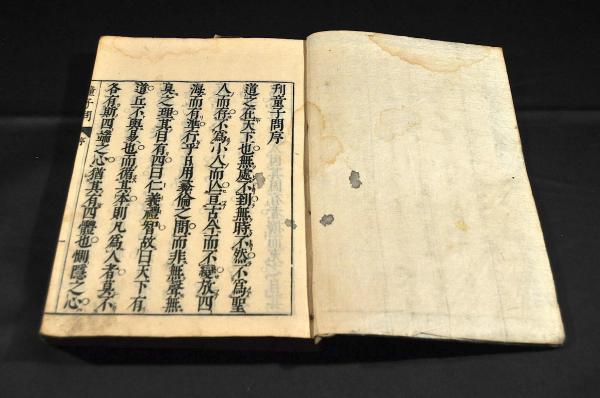 刊童子問序
道之在天下也無處不到無時不然不為聖
人而存不為小人而亾亘古今而不變放四
海而有準行乎日用彜倫之間而非無聲無
臭之理其目有四曰仁義禮智故曰天下有
道丘不與易也而循其本則凡為人者莫不
各有斯四端之心猶其有四體也惻隱之心
童子問 序